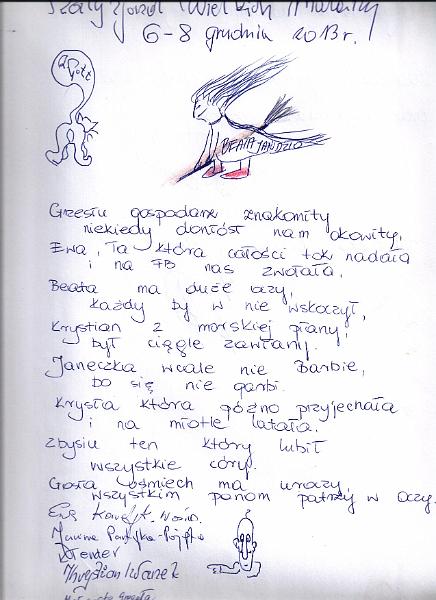 Zjazd Wielkich
6-8 grudnia 2013r.
BEATA
Grzesiu gospodarz znakomity
niekiedy doniósł nam okowity,
Ewa, Ta która całości tok nadała
i na FB nas zwołała,
Beata ma duże oczy,
każdy by w nie wskoczył,
Krystian z morskiej piany,
był ciągle zawiany.
Janeczka wcale nie Barbie,
bo się nie garbi.
Krysia która późno przyjechała
i na miotle latała.
Zbysiu ten który lubił
wszystkie córy.
Gosia uśmiech ma uroczy,
wszystkim panom patrzy w oczy.
Ewa
Janina
Krystian